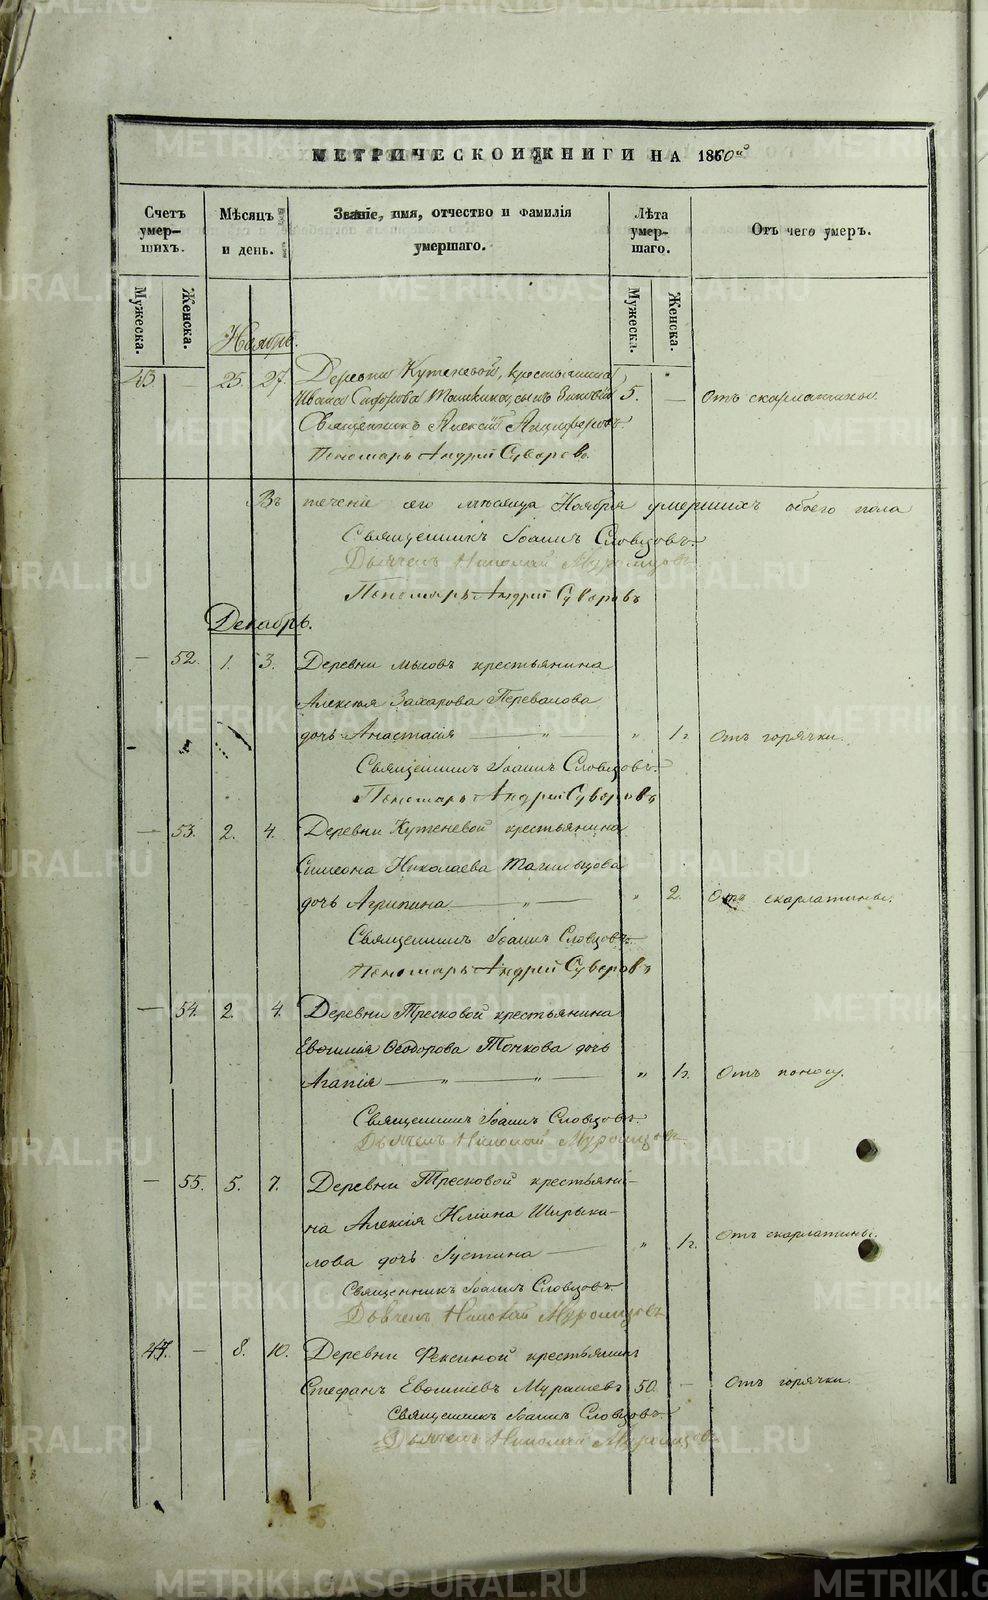 МЕТРИЧЕСКОЙ КНИГИ НА 1860й
Счетъ умер-шихъ.
Мѣсяцъ и день.
Званіе, имя, отчество и фамилія умершаго.
Лѣта умер-шаго.
Отъ чего умеръ.
Мужеска.
Женска.
Мужеска.
Женска.
Ноябрь.
43 — 25. 27. Деревни Кутеневой, крестьянина
Ивана Сидорова Тошкина, сынъ Зиновій 5. — Отъ скарлатины.
Священникъ Алексій
Пономарь Андрей Суворовъ
Въ теченіе сего мѣсяца Ноября умершихъ обоего пола
Священникъ Іоаннъ Словцовъ.
Дьячекъ Николай Муромцовъ
Пономарь Андрей Суворовъ
Декабрь.
— 52. 1. 3. Деревни Мысовъ крестьянина
Алексія Захарова Перевалова
дочь Анастасія — „ — „ 1г. Отъ горячки.
Священникъ Іоаннъ Словцовъ.
Пономарь Андрей Суворовъ
— 53. 2. 4. Деревни Кутеневой крестьянина
Симеона Николаева Тагильцова
дочь Агрипина — „ — „ 2. Отъ скарлатины.
Священникъ Іоаннъ Словцовъ.
Пономарь Андрей Суворовъ
— 54. 2. 4. Деревни Тресковой крестьянина
Евѳимія Ѳеодорова Тонкова дочь
Агапія — „ — „ — „ 1г. Отъ поносу.
Священникъ Іоаннъ Словцовъ.
Дьячекъ Николай Муромцовъ
— 55. 5. 7. Деревни Тресковой крестьяни-
на Алексія Ильина Ширыка-
лова дочь Іустина — „ 1г. Отъ скарлатины.
Священникъ Іоаннъ Словцовъ.
Дьячекъ Николай Муромцовъ
44. — 8. 10. Деревни Фексиной крестьянинъ
Стефанъ Евѳиміевъ Мурашевъ 50. — Отъ горячки.
Священникъ Іоаннъ Словцовъ.
Дьячекъ Николай Муромцовъ
METRIKI.GASO-URAL.RU